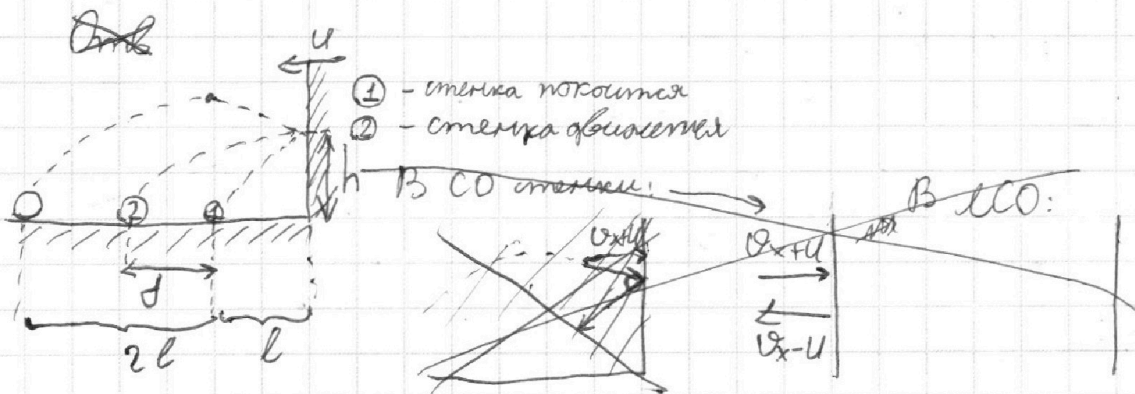 Отв
u
① - стенка покоится
② - стенка движется
h
В СО стенки:
В ЛСО:
② ①
d
2l
l
vx+u
vx+u
vx-u